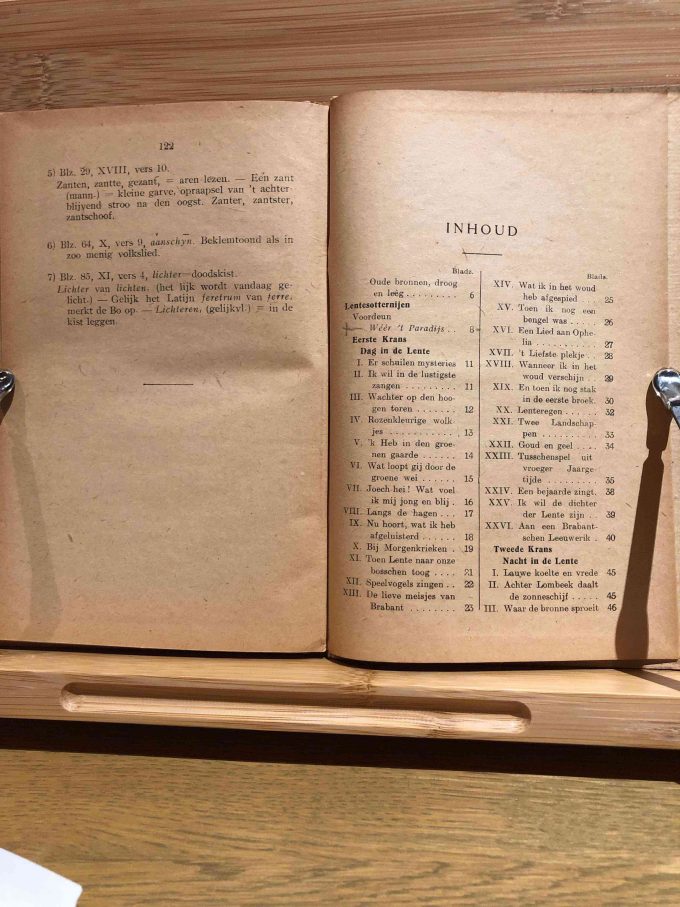 122
5) Blz. 29, XVIII, vers 10.
Zanten, zantte, gezant, = aren lezen. — Eén zant
(mann.) = kleine garve, opraapsel van 't achter
blijvend stroo na den oogst. Zanter, zantster,
zantschoof.
6) Blz. 64, X, vers 9, aanschyn. Beklemtoond als in
zoo menig volkslied.
7) Blz. 85, XI, vers 4, lichter=doodskist.
Lichter van lichten. (het lijk wordt vandaag ge-
licht.) — Gelijk het Latijn feretrum van ferre,
merkt de Bo op. — Lichteren, (gelijkvl.) = in de
kist leggen.
INHOUD
Bladz.
Oude bronnen, droog
en leêg ......... 6
Lentesotternijen
Voordeun
Wéér 't Paradijs .. 8
Eerste Krans
Dag in de Lente
I. Er schuilen mysteries 11
II. Ik wil in de lustigste
zangen ........ 11
III. Wachter op den hoo-
gen toren ....... 12
IV. Rozenkleurige wolk-
jes ............ 13
V. 'k Heb in den groe-
nen gaarde ..... 14
VI. Wat loopt gij door de
groene wei ...... 15
VII. Joech hei! Wat voel
ik mij jong en blij . 16
VIII. Langs de hagen ... 17
IX. Nu hoort, wat ik heb
afgeluisterd ..... 18
X. Bij Morgenkrieken . 19
XI. Toen Lente naar onze
bosschen toog .... 21
XII. Speelvogels zingen .. 22
XIII. De lieve meisjes van
Brabant ........ 23
Bladz.
XIV. Wat ik in het woud
heb afgespied ... 25
XV. Toen ik nog een
bengel was ..... 26
XVI. Een Lied aan Ophe-
lia ............ 27
XVII. 't Liefste plekje .. 28
XVIII. Wanneer ik in het
woud verschijn .. 29
XIX. En toen ik nog stak
in de eerste broek. 30
XX. Lenteregen ..... 32
XXI. Twee Landschap-
pen .......... 33
XXII. Goud en geel .... 34
XXIII. Tusschenspel uit
vroeger Jaarge
tijde ......... 35
XXIV. Een bejaarde zingt. 38
XXV. Ik wil de dichter
der Lente zijn ... 39
XXVI. Aan een Brabant-
schen Leeuwerik . 40
Tweede Krans
Nacht in de Lente
I. Lauwe koelte en vrede 45
II. Achter Lombeek daalt
de zonneschijf ..... 45
III. Waar de bronne sproeit 46